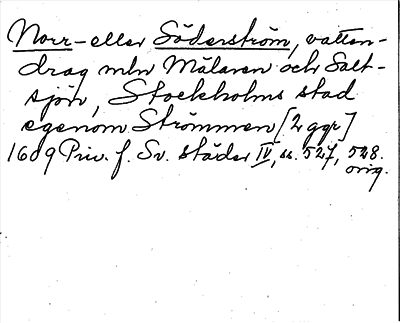 Norr- eller Söderström, vatten-
drag mln Mälaren och Salt-
sjön, Stockholms stad
egenom Strömmen [2 ggr]
1609 Priv. f. Sv. städer IV, ss. 527, 528.
orig.